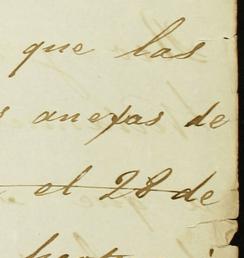 que las
anexas de
el 28 de